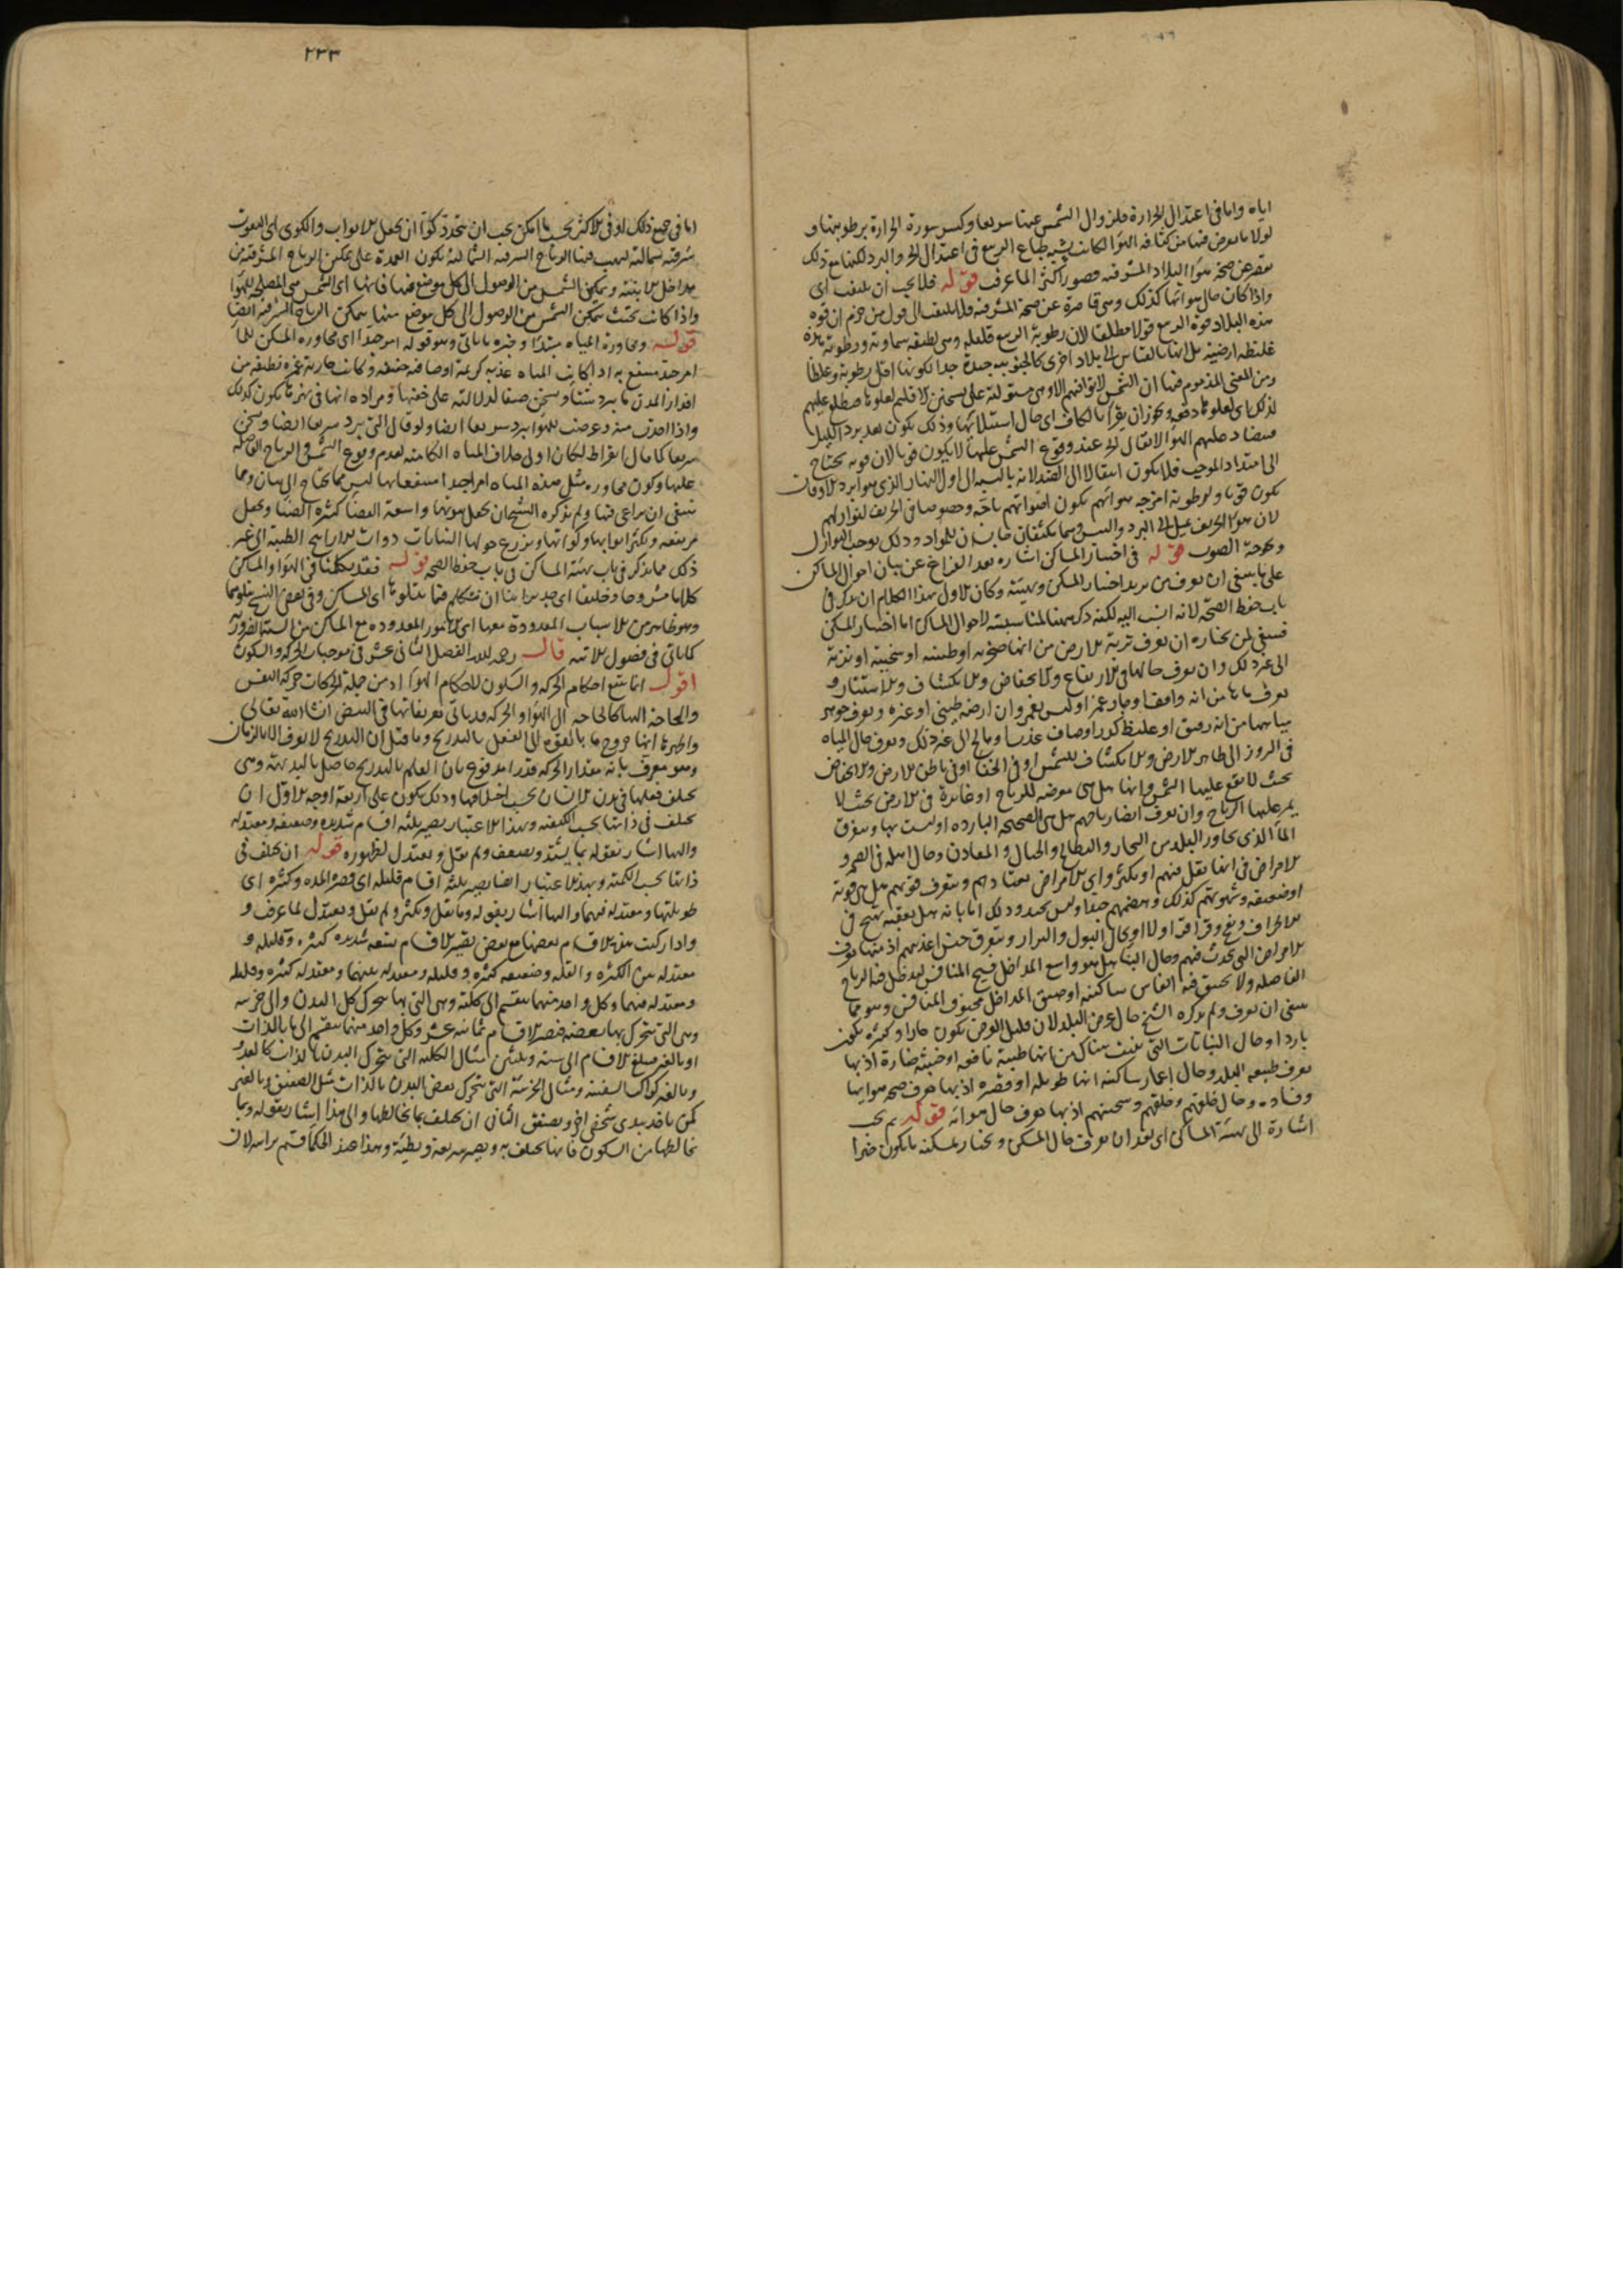 اياه واما فى اعتدال الحرارة فلزوال الشمس عنها سريعا وكسر سورة الحرارة برطوبتها و
لولا ما يعرض فيها من كثافة الهوا لكانت شبيه طباع الربيع فى اعتدال الحر والبرد لكنها مع ذلك
يقصر عن صحة هوا البلاد المشرقية قصورا كثيرا لما عرف قوله فلا يجب ان يلتفت اى
واذا كان حال هوائها كذلك وهى قاصرة عن صحة المشرقية فلا يلتفت الى قول من جزم ان قوة
هذه البلاد قوة الربيع قولا مطلقا لان رطوبة الربيع قليلة وهى لطيفة سماوية ورطوبة هذه
غليظة ارضية بل انها بالقياس الى بلاد اخرى كالجنوبية جيدة جدا لكونها اقل رطوبة وغلظا
ومن المعنى المذموم فيها ان الشمس لا توافيهم الا وهى مستولية على تسخين الاقليم لعلوها فتطلع عليهم
لذلك اى لعلوها دفعة
فيتضاد عليهم الهوا
الى امتداد الموجب فلا يكون انتقالا الى الضد لانه بالنسبة الى اول النهار الذى هو ابرد الاوقات
يكون قويا ولرطوبة امزجة هوائهم يكون اصواتهم باحة وخصوصا فى الخريف لنوازلهم
لان هوا الخريف يميل الى البرد واليبس وهما يكثفان
وبحوحة الصوت قوله فى اختيار المساكن اشارة بعد الفراغ عن بيان احوال المساكن
على ما ينبغى ان يعرف من يريد اختيار المسكن وهيئته وكان الاولى بهذا الكلام ان يذكر فى
باب حفظ الصحة لانه انسب اليه لكنه ذكره ههنا لمناسبته لاحوال المساكن اما اختيار المسكن
فينبغى لمن يختاره ان يعرف تربة الارض من انها صخرية او طينية او سبخية او نزية
الى غير ذلك وان يعرف حالها فى الارتفاع والانخفاض والانكشاف والاستتار و
يعرف ماءها من انه
بمياهها من انه رقيق او غليظ كدر او صاف عذب او مالح الى غير ذلك ويعرف حال المياه
فى البروز الى ظاهر الارض والانكشاف للشمس او فى الخفا او فى باطن الارض والانخفاض
بحيث لا يقع عليها الشمس وانها هل هى معرضة للرياح او غائرة فى الارض بحيث لا
يمر عليها الرياح وان يعرف ايضا رياحهم هل هى الصحيحة الباردة او ليست بها ويعرف
الماء الذى يجاور البلد من البحار والبطائح والجبال والمعادن وحال اهله فى الصحة و
الامراض فى انها تقل فيهم او تكثر واى الامراض يعتادهم ويتعرف قوتهم هل هى قوية
او ضعيفة وشهوتهم كذلك وهضمهم
الامراض التى يحدث فيهم وحال البناء هل هو واسع المداخل فسيح المنافس ليدخل فيه الرياح
الفاضلة ولا يختنق فيه انفاس ساكنيه او ضيق المداخل مخنوق المنافس وهو مما
ينبغى ان يعرف ولم يذكره الشيخ حال عرض البلد لان قليل العرض يكون حارا وكثيره يكون
باردا وحال النباتات التى ينبت هناك من انها طيبة نافعة او خبيثة ضارة اذ بها
يعرف طبيعة البلد وحال اعمار ساكنيه انها طويلة او قصيرة اذ بها يعرف صحة هوائها
وفساده وحال خلقهم وخلقهم وسحنتهم اذ بها يعرف حال هوائه قوله ثم يجب
اشارة الى هيئة المساكن اى بعد ان يعرف حال المسكن ويختار لمسكنه ما يكون خيرا
٢٣٣
اما فى جميع ذلك او فى الاكثر بحسب ما امكن يجب ان
شرقية شمالية ليهب فيها الرياح الشرقية الشمالية يكون العمدة على تمكين الرياح المشرقية من
مداخل الابنية وتمكين الشمس من الوصول الى كل موضع فيها فانها اى الشمس هى المصلحة للهوا
واذا كانت بحيث يتمكن الشمس من الوصول الى كل موضع منها يتمكن الرياح الشرقية ايضا
قوله ومجاورة المياه مبتدا وخبره ما ياتى وهو قوله امر جيد اى مجاورة المسكن للماء
امر جيد ينتفع به اذا كانت المياه عذبة كريمة اوصافه خفيفة وكانت جارية غمرة نظيفة من
اقذار المدن ما يبرد شتاء ويسخن صيفا لدلالته على خفتها
سريعا كما قال ابقراط لكان اولى بخلاف المياه الكامنة لعدم وقوع الشمس والرياح الفاضلة
عليها وكون مجاورة مثل هذه المياه امرا جيدا منتفعا بها ليس مما يحتاج الى بيان ومما
ينبغى ان يراعى فيها ولم يذكره الشيخ ان يجعل بيوتها واسعة الفضا كثيرة الضيا ويجعل
مرتفعة ويكثر ابوابها وكواتها ويزرع حولها النباتات ذوات الاراييح الطيبة الى غير
ذلك مما يذكر فى باب هيئة المساكن فى باب حفظ الصحة قوله فقد تكلمنا فى الهوا والمساكن
كلاما مشروحا وخليق بنا اى جدير بنا ان نتكلم فيما يتلوها اى المساكن وفى بعض النسخ يتلوهما
وهو ظاهر من الاسباب المعدودة معها اى الامور المعدودة مع المساكن من الستة الضرورية
كما ياتى فى فصول ثلاثة قال رحمه الله الفصل الثانى عشر فى موجبات الحركة والسكون
اقول انما يتبع احكام الحركة والسكون لاحكام الهوا اذ من جملة الحركات حركة النفس
والحاجة اليها كالحاجة الى الهوا والحركة قد ياتى تعريفاتها فى النبض ان شا الله تعالى
واظهرها انها خروج ما بالقوة الى الفعل بالتدريج وما قيل ان التدريج لا يعرف الا بالزمان
وهو معرف بانه مقدار الحركة فدور مدفوع بان العلم بالتدريج حاصل بالبديهة وهى
يختلف فعلها فى بدن الانسان بحسب اختلافها وذلك يكون على اربعة اوجه الاول ان
يختلف فى ذاتها بحسب الكيفية وبهذا الاعتبار يصير ثلثة اقسام شديدة وضعيفة ومعتدلة
واليها اشار بقوله بما يشتد ويضعف ولم يقل ويعتدل لظهوره قوله ان يختلف فى
ذاتها بحسب الكمية وبهذا الاعتبار ايضا يصير ثلثة اقسام قليلة اى قصيرة المدة وكثيرة اى
طويلتها ومعتدلة فيهما واليها اشار بقوله وما يقل ويكثر ولم يقل ويعتدل لما عرف و
واذا ركبت هذه الاقسام بعضها مع بعض يصير الاقسام تسعة شديدة كثيرة وقليلة و
معتدلة بين الكثرة والقلة وضعيفة كثيرة وقليلة ومعتدلة بينهما ومعتدلة كثيرة وقليلة
ومعتدلة فيهما وكل واحد منهما ينقسم الى كلية وهى التى بها يتحرك كل البدن والى جزئية
وهى التى يتحرك بها بعضه فيصير الاقسام ثمانية عشر وكل واحد منها ينقسم الى ما بالذات
او بالغير فيبلغ الاقسام الى ستة وثلثين مثال الكلية التى يتحرك البدن بالذات كالعدو
وبالغير كراكب السفينة ومثال الجزئية التى يتحرك بعض البدن بالذات مثل التصفيق وبالغير
كمن ياخذ بيدى شخص اخر ويصفق الثانى ان يختلف بما يخالطها والى هذا اشار بقوله وبما
يخالطها من السكون فانها يختلف به ويصير سريعة وبطيئة وهذا عند الحكما قسم براسه لان